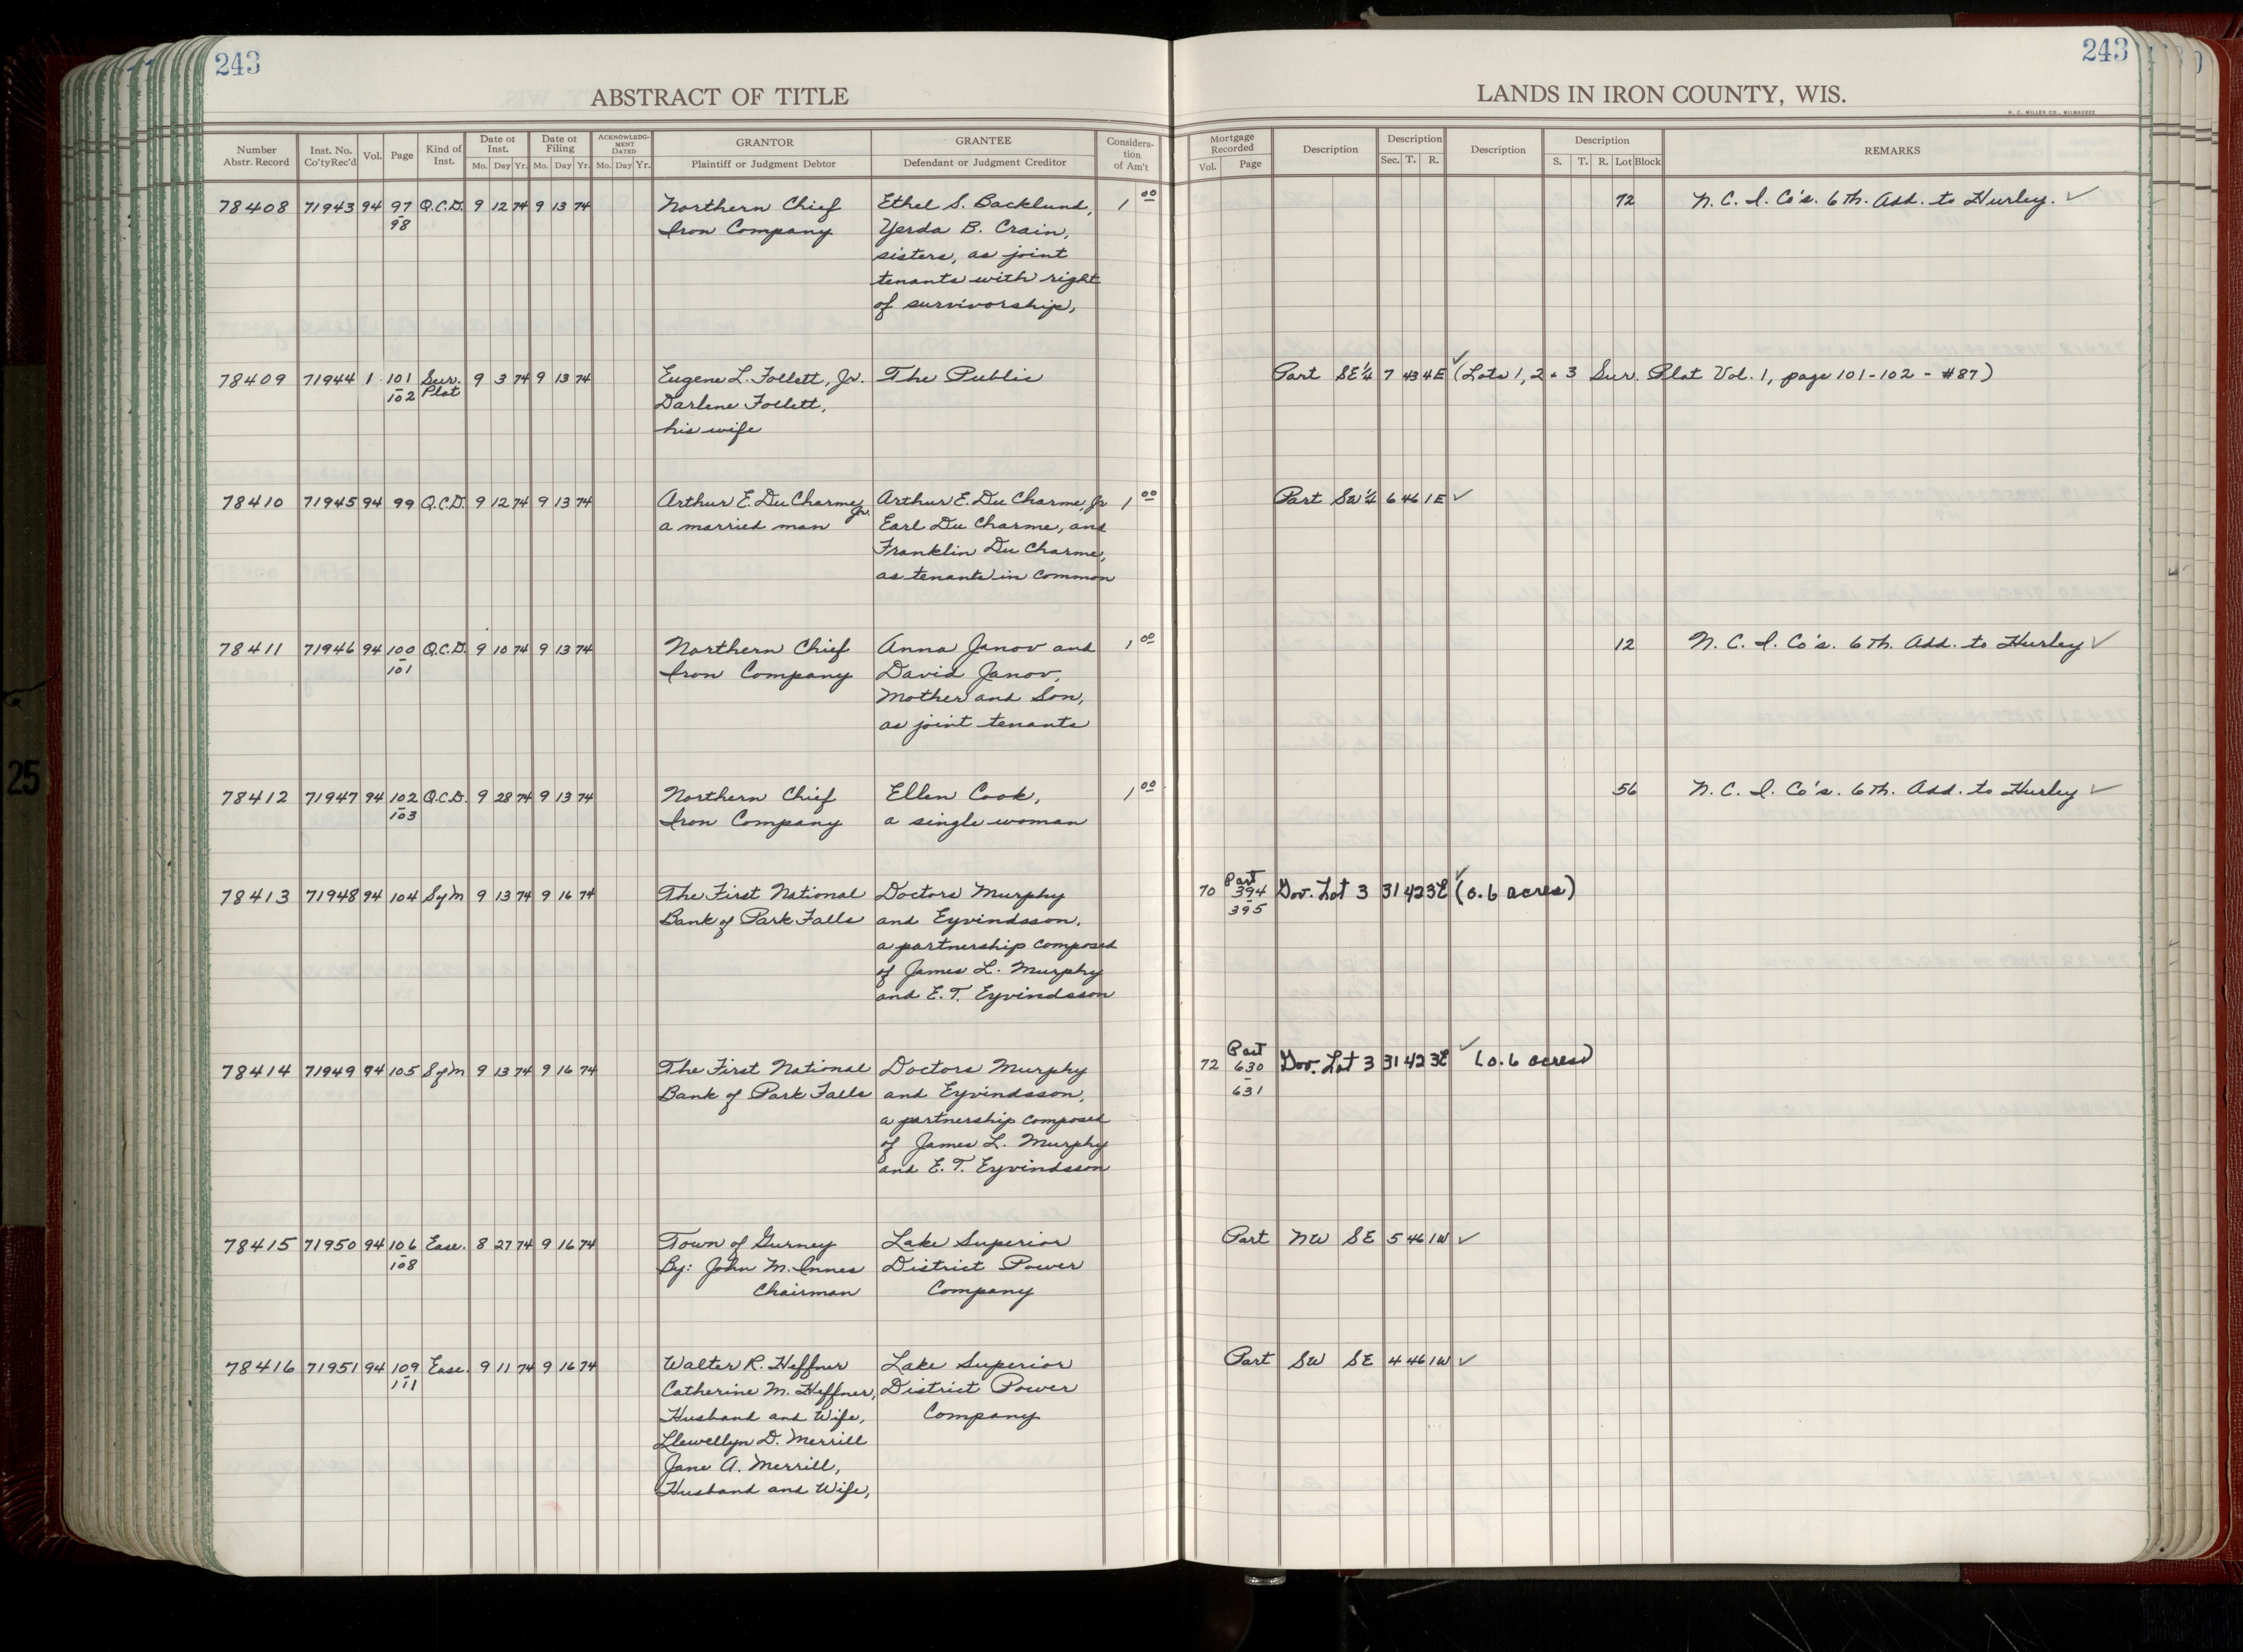 243
243
ABSTRACT OF TITLE
LANDS IN IRON COUNTY, WIS.
H. C. MILLER CO., MILWAUKEE
Number Abstr. Record | Inst. No. Co'ty Rec'd | Vol. | Page | Kind of Inst. | Date of Inst. Mo. Day Yr. | Date of Filing Mo. Day Yr. | ACKNOWLEDGMENT DATED Mo. Day Yr. | GRANTOR Plaintiff or Judgment Debtor | GRANTEE Defendant or Judgment Creditor | Consideration of Am't | Mortgage Recorded Vol. Page | Description | Description Sec. T. R. | Description | Description S. T. R. Lot Block | REMARKS
78408 71943 94 97 Q.C.D. 9 12 74 9 13 74 Northern Chief Ethel S. Backlund, 1 00 72 N. C. I. Co's. 6th. Add. to Hurley. ✓
- 98 Iron Company Yerda B. Crain,
sisters, as joint
tenants with right
of survivorship,
78409 71944 1 101 Sur. 9 3 74 9 13 74 Eugene L. Follett, Jr. The Public Part SE¼ 7 43 4E ✓ (Lots 1, 2 & 3 Sur. Plat Vol. 1, page 101-102 - #87)
- 102 Plat Darlene Follett,
his wife
78410 71945 94 99 Q.C.D. 9 12 74 9 13 74 Arthur E. Du Charme, Jr. Arthur E. Du Charme, Jr 1 00 Part SW¼ 6 46 1E ✓
a married man Earl Du Charme, and
Franklin Du Charme,
as tenants in common
78411 71946 94 100 Q.C.D. 9 10 74 9 13 74 Northern Chief Anna Janov and 1 00 12 N. C. I. Co's. 6th. Add. to Hurley ✓
- 101 Iron Company David Janov,
Mother and Son,
as joint tenants
78412 71947 94 102 Q.C.D. 9 28 74 9 13 74 Northern Chief Ellen Cook, 1 00 56 N. C. I. Co's. 6th. Add. to Hurley ✓
- 103 Iron Company a single woman
78413 71948 94 104 Sym 9 13 74 9 16 74 The First National Doctors Murphy 70 Part 394 - 395 Gov. Lot 3 31 42 3E ✓ (0.6 acres)
Bank of Park Falls and Eyvindsson,
a partnership composed
of James L. Murphy
and E. T. Eyvindsson
78414 71949 94 105 Sym 9 13 74 9 16 74 The First National Doctors Murphy 72 Part 630 - 631 Gov. Lot 3 31 42 3E ✓ (0.6 acres)
Bank of Park Falls and Eyvindsson,
a partnership composed
of James L. Murphy
and E. T. Eyvindsson
78415 71950 94 106 Ease. 8 27 74 9 16 74 Town of Gurney Lake Superior Part NW SE 5 46 1W ✓
- 108 By: John M. Innes District Power
Chairman Company
78416 71951 94 109 Ease. 9 11 74 9 16 74 Walter R. Heffner Lake Superior Part SW SE 4 46 1W ✓
- 111 Catherine M. Heffner, District Power
Husband and Wife, Company
Llewellyn D. Merrill
Jane A. Merrill,
Husband and Wife,
25